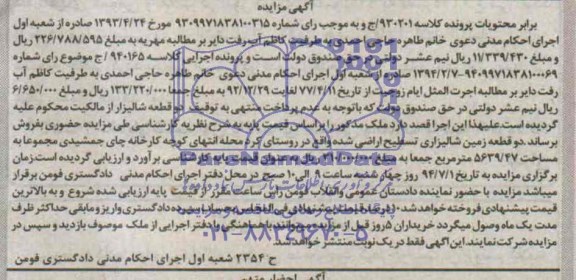 آگهی مزایده
برابر محتویات پرونده کلاسه ۹۳۰۲۰۱/ج و به موجب رای شماره ۹۳۰۹۹۷۱۸۳۸۱۰۰۳۱۵ مورخ ۱۳۹۳/۴/۲۴ صادره از شعبه اول
اجرای احکام مدنی دعوی خانم طاهره حاجی احمدی به طرفیت کاظم آب رفت دایر بر مطالبه مهریه به مبلغ ۲۲۶/۷۸۸/۵۹۵ ریال
و مبلغ ۱۱/۳۳۹/۴۳۰ ریال نیم عشر دولتی در حق صندوق دولت است و پرونده اجرایی کلاسه ۹۴۰۱۶۵/ج موضوع رای شماره
۹۴۰۹۹۷۱۸۳۸۱۰۰۰۶۹-۱۳۹۴/۲/۷ صادره از شعبه اول اجرای احکام مدنی دعوی خانم طاهره حاجی احمدی به طرفیت کاظم آب
رفت دایر بر مطالبه اجرت المثل ایام زوجیت از تاریخ ۷۷/۴/۱۱ لغایت ۹۲/۱۲/۲۹ به مبلغ جمعا ۱۳۳/۲۲۰/۰۰۰ ریال و مبلغ ۶/۶۵۰/۰۰۰
ریال نیم عشر دولتی در حق صندوق دولت که باتوجه به عدم پرداخت منتهی به توقیف دو قطعه شالیزار از مالکیت محکوم علیه
گردیده است علیهذا این اجرا قصد دارد ملک مذکور را براساس قیمت پایه به شرح نظریه کارشناسی طی مزایده حضوری بفروش
برساند. دو قطعه زمین شالیزاری تسطیح اراضی شده واقع در روستای کرد محله انتهای کوچه کارخانه چای جمشیدی مجموعا به
مساحت ۵۶۳۹/۴۷ مترمربع جمعا به مبلغ ریال به عنوان قیمت پایه کارشناسی برآورد و ارزیابی گردیده است زمان
برگزاری مزایده به تاریخ ۹۴/۷/۱ روز چهار شنبه ساعت ۹ الی ۱۰ صبح در محل دفتر اجرای احکام مدنی دادگستری فومن برقرار
میباشد مزایده با حضور نماینده دادستان عمومی وانقلاب فومن راس ساعت مقرر از قیمت پایه ارزیابی شده شروع و به بالاترین
قیمت پیشنهادی فروخته خواهد شد. دادگستری واریز و مابقی حداکثر ظرف
مدت یک ماه وصول میگردد خریداران ۵ روز قبل از مزایده میتوانند با هماهنگی با دفتر اجرایی از ملک موصوف بازدید و سپس در
مزایده شرکت نمایند. این آگهی فقط در یک نوبت منتشر خواهد شد.
ح ۲۳۵۴ شعبه اول اجرای احکام مدنی دادگستری فومن